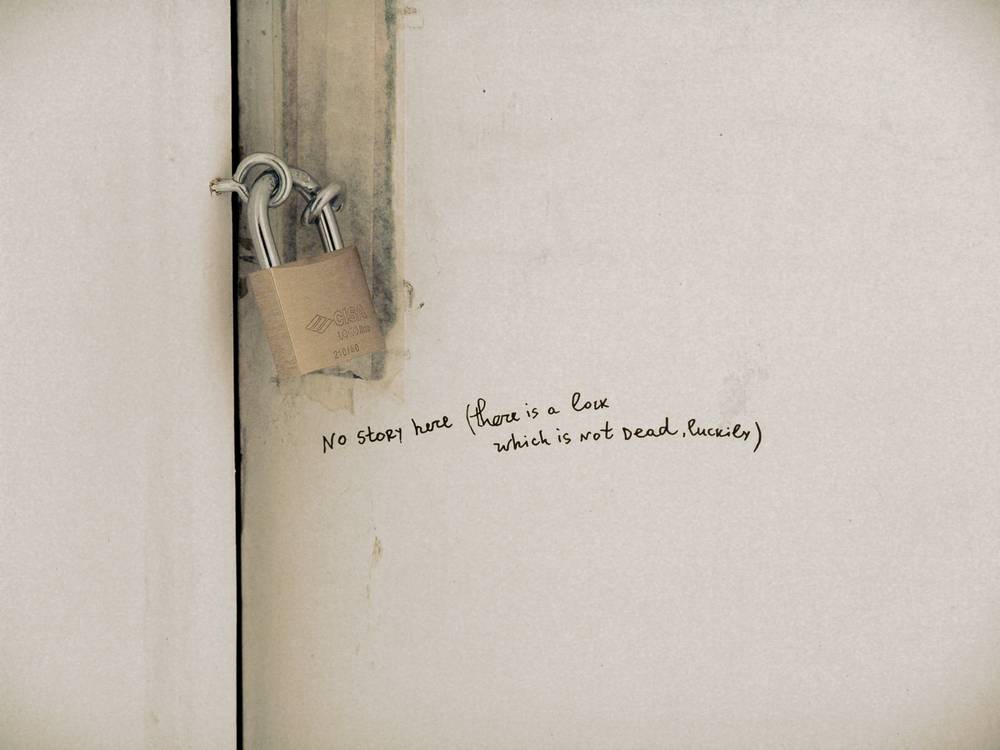 CISA
210/60
No story here (there is a lock
which is not Dead, luckily)